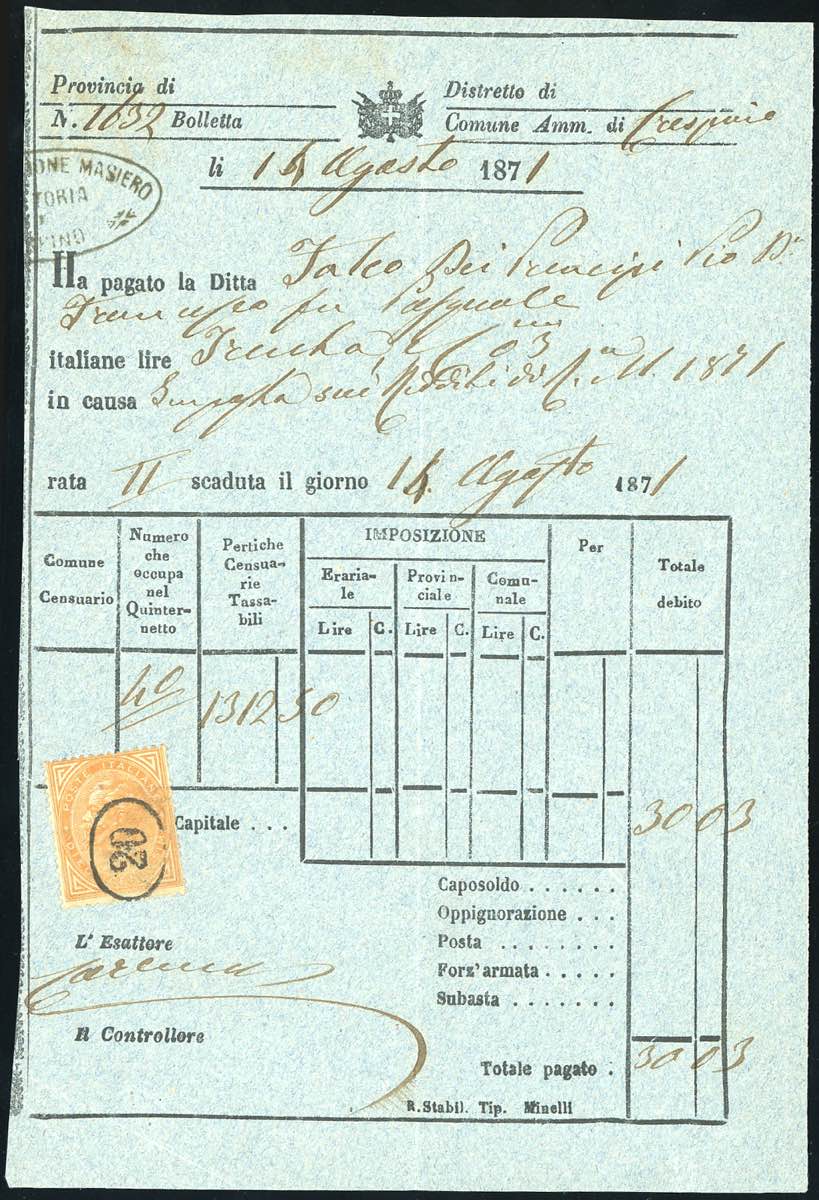 Provincia di
Distretto di
N. 1632 Bolletta
Comune Amm. di Crespino
li 14 Agosto 1871
ONE MASIERO
TORIA
PINO
Ha pagato la Ditta Falco Dei Principi Pio Dn
Francesco fu Pasquale
italiane lire Trenta, e C.mi 03
in causa sui Redditi di R. M. 1871
rata II scaduta il giorno 14 Agosto 1871
Comune Censuario
Numero che occupa nel Quinternetto
Pertiche Censuarie Tassabili
IMPOSIZIONE
Erariale
Provinciale
Comunale
Lire C. Lire C. Lire C.
Per
Totale debito
40 1312 50
POSTE ITALIANE
02
Capitale . . . 30 03
Caposoldo . . . . . .
Oppignorazione . . .
Posta . . . . . . .
Forz'armata . . . . .
Subasta . . . . . . .
L' Esattore
Il Controllore
Totale pagato . 30 03
R. Stabil. Tip. Minelli